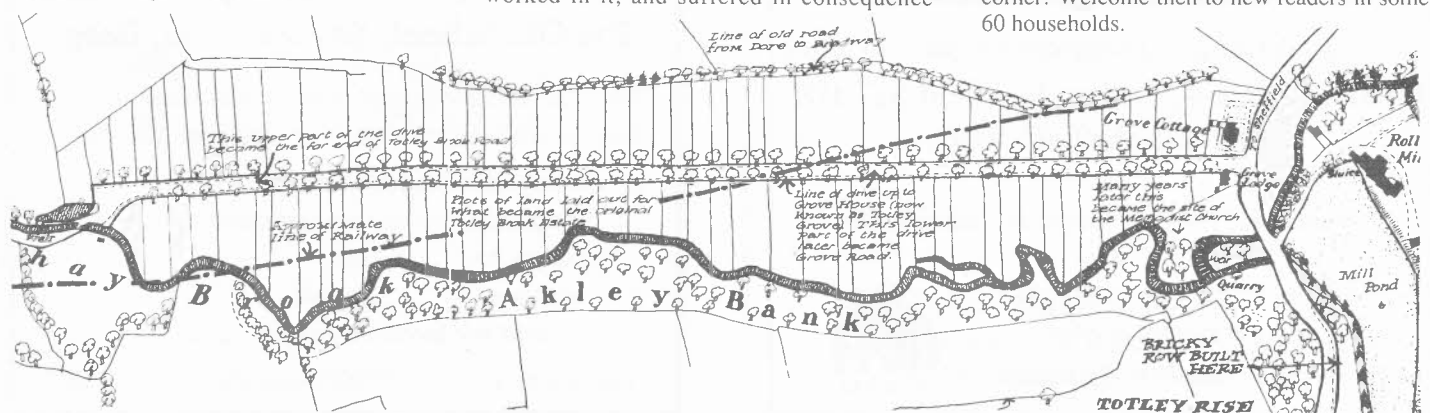 worked in it, and suffered in consequence
corner. Welcome then to new readers in some
60 households.
Line of old road
from Dore to Bradway
This upper part of the drive
became the far end of Totley Brook Road
Grove Cottage
Sheffield
Roll
Mi
Sluice
Grove
Lodge
Plots of land laid out for
what became the original
Totley Brook Estate
Approximate
line of Railway
Line of drive up to
Grove House (now
known as Totley
Grove) This lower
part of the drive
later became
Grove Road.
Many years
later this
became the site of
the Methodist Church
Weir
Weir
Quarry
Mill
Pond
hay Brook
Akley Bank
BRICKY
ROW BUILT
HERE
TOTLEY RISE